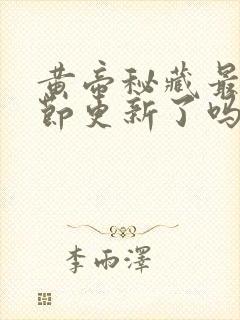 黄帝秘藏最
节更新了吗
李雨泽